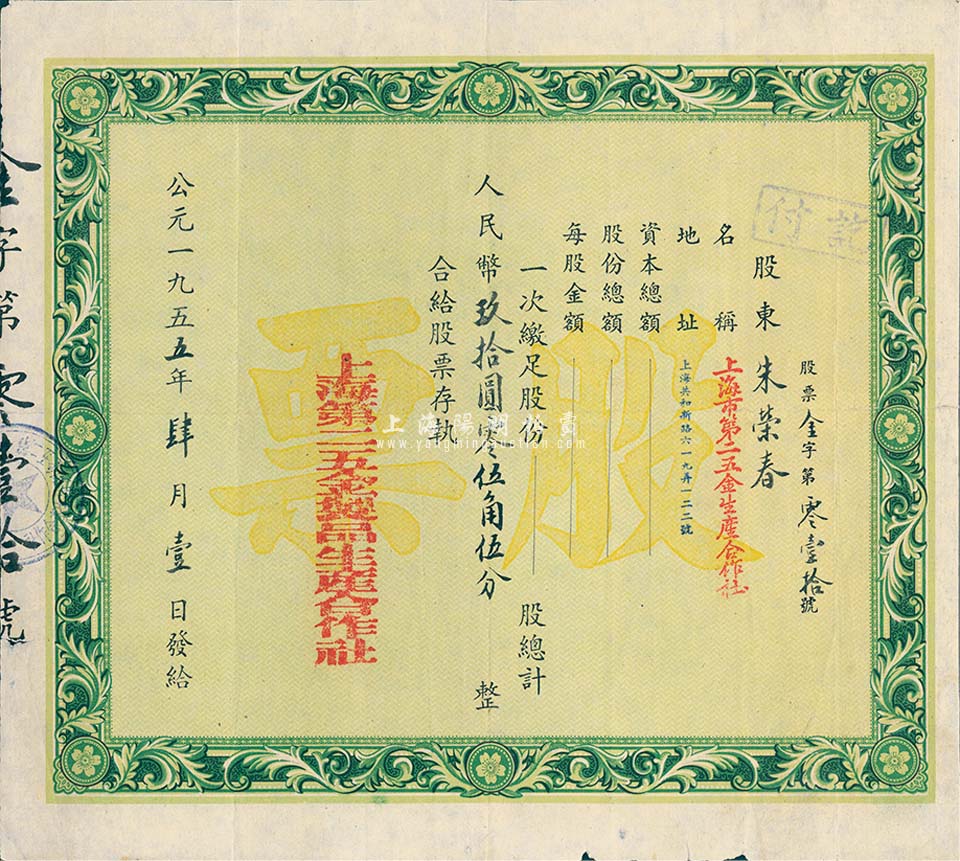 股票金字第零壹拾號
股東 朱榮春
名稱 上海市第二五金生產合作社
地址 上海共和新路六一九弄一二二號
資本總額
股份總額
每股金額
一次繳足股份 股總計
人民幣玖拾圓零伍角伍分 整
合給股票存執
公元一九五五年肆月壹日發給
股票
記付
上海第二五金製品生產合作社
字第零壹拾號
上海陽明拍賣